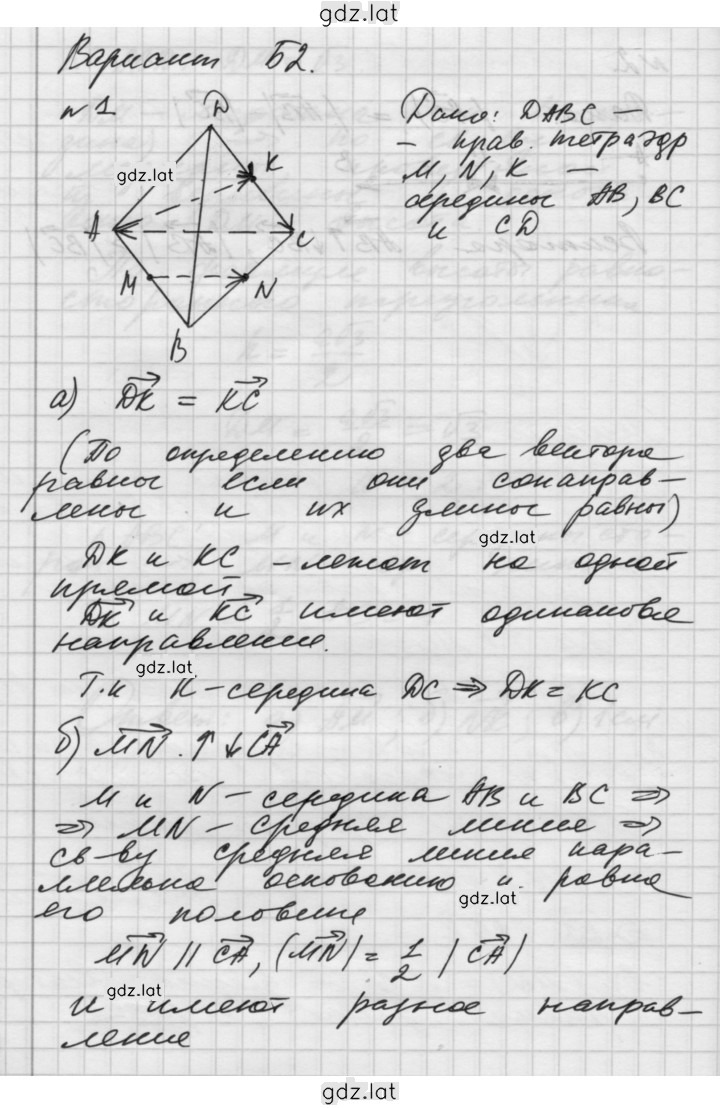 gdz.lat
Вариант Б2.
№1
D
K
A
C
M
N
B
gdz.lat
Дано: DABC —
– прав. тетраэдр
M, N, K —
середины AB, BC
и CD
а) DK = KC
(По определению два вектора
равны если они сонаправ–
лены и их длины равны)
gdz.lat
DK и KC – лежат на одной
прямой.
DK и KC имеют одинаковое
направление.
gdz.lat
Т.к K – середина DC ⇒ DK = KC
б) MN ↑↓ CA
M и N – середина AB и BC ⇒
⇒ MN – средняя линия ⇒
св-ву средняя линия пара–
ллельна основанию и равна
gdz.lat
его половине
MN || CA, |MN| = 1/2 |CA|
gdz.lat
и имеют разное направ–
ление
gdz.lat